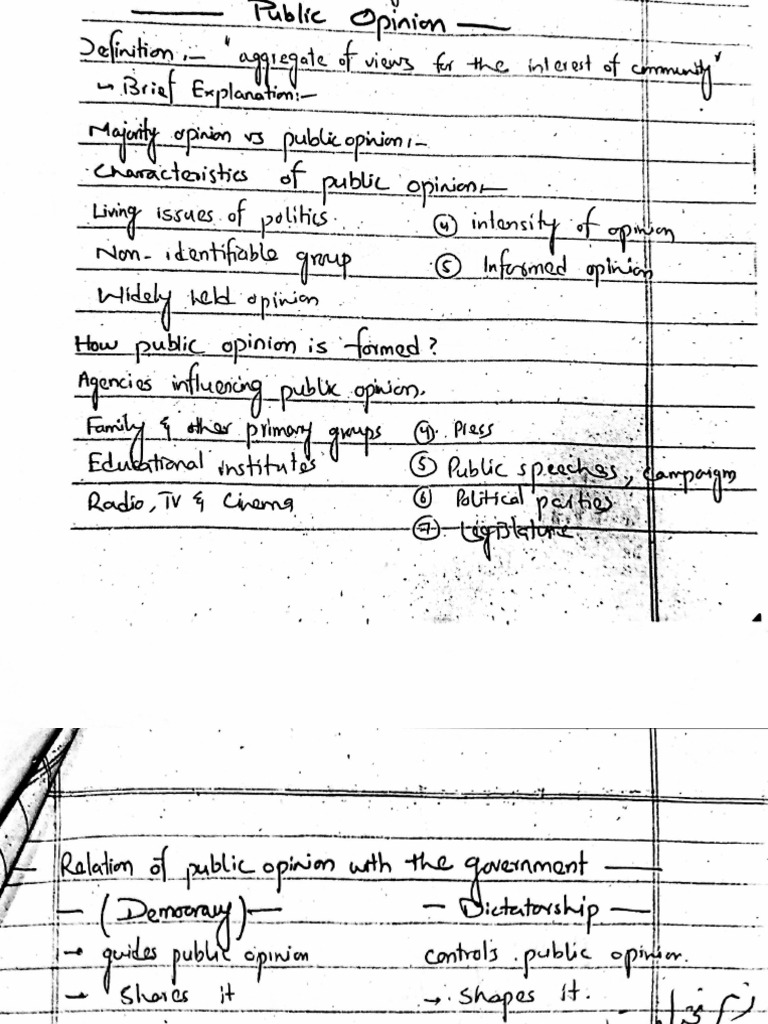 Public Opinion
Definition :- "aggregate of views for the interest of community"
Brief Explanation:-
Majority opinion vs public opinion:-
Characteristics of public opinion:-
Living issues of politics ④ intensity of opinion
Non-identifiable group ⑤ Informed opinion
Widely held opinion
How public opinion is formed?
Agencies influencing public opinion.
Family & other primary groups ④. Press
Educational institutes ⑤ Public speeches, campaign
Radio, TV & Cinema ⑥ Political parties
⑦. Legislature.
Relation of public opinion with the government
(Democracy) — Dictatorship
→ guides public opinion controls public opinion.
→ Shares it → Shapes it.